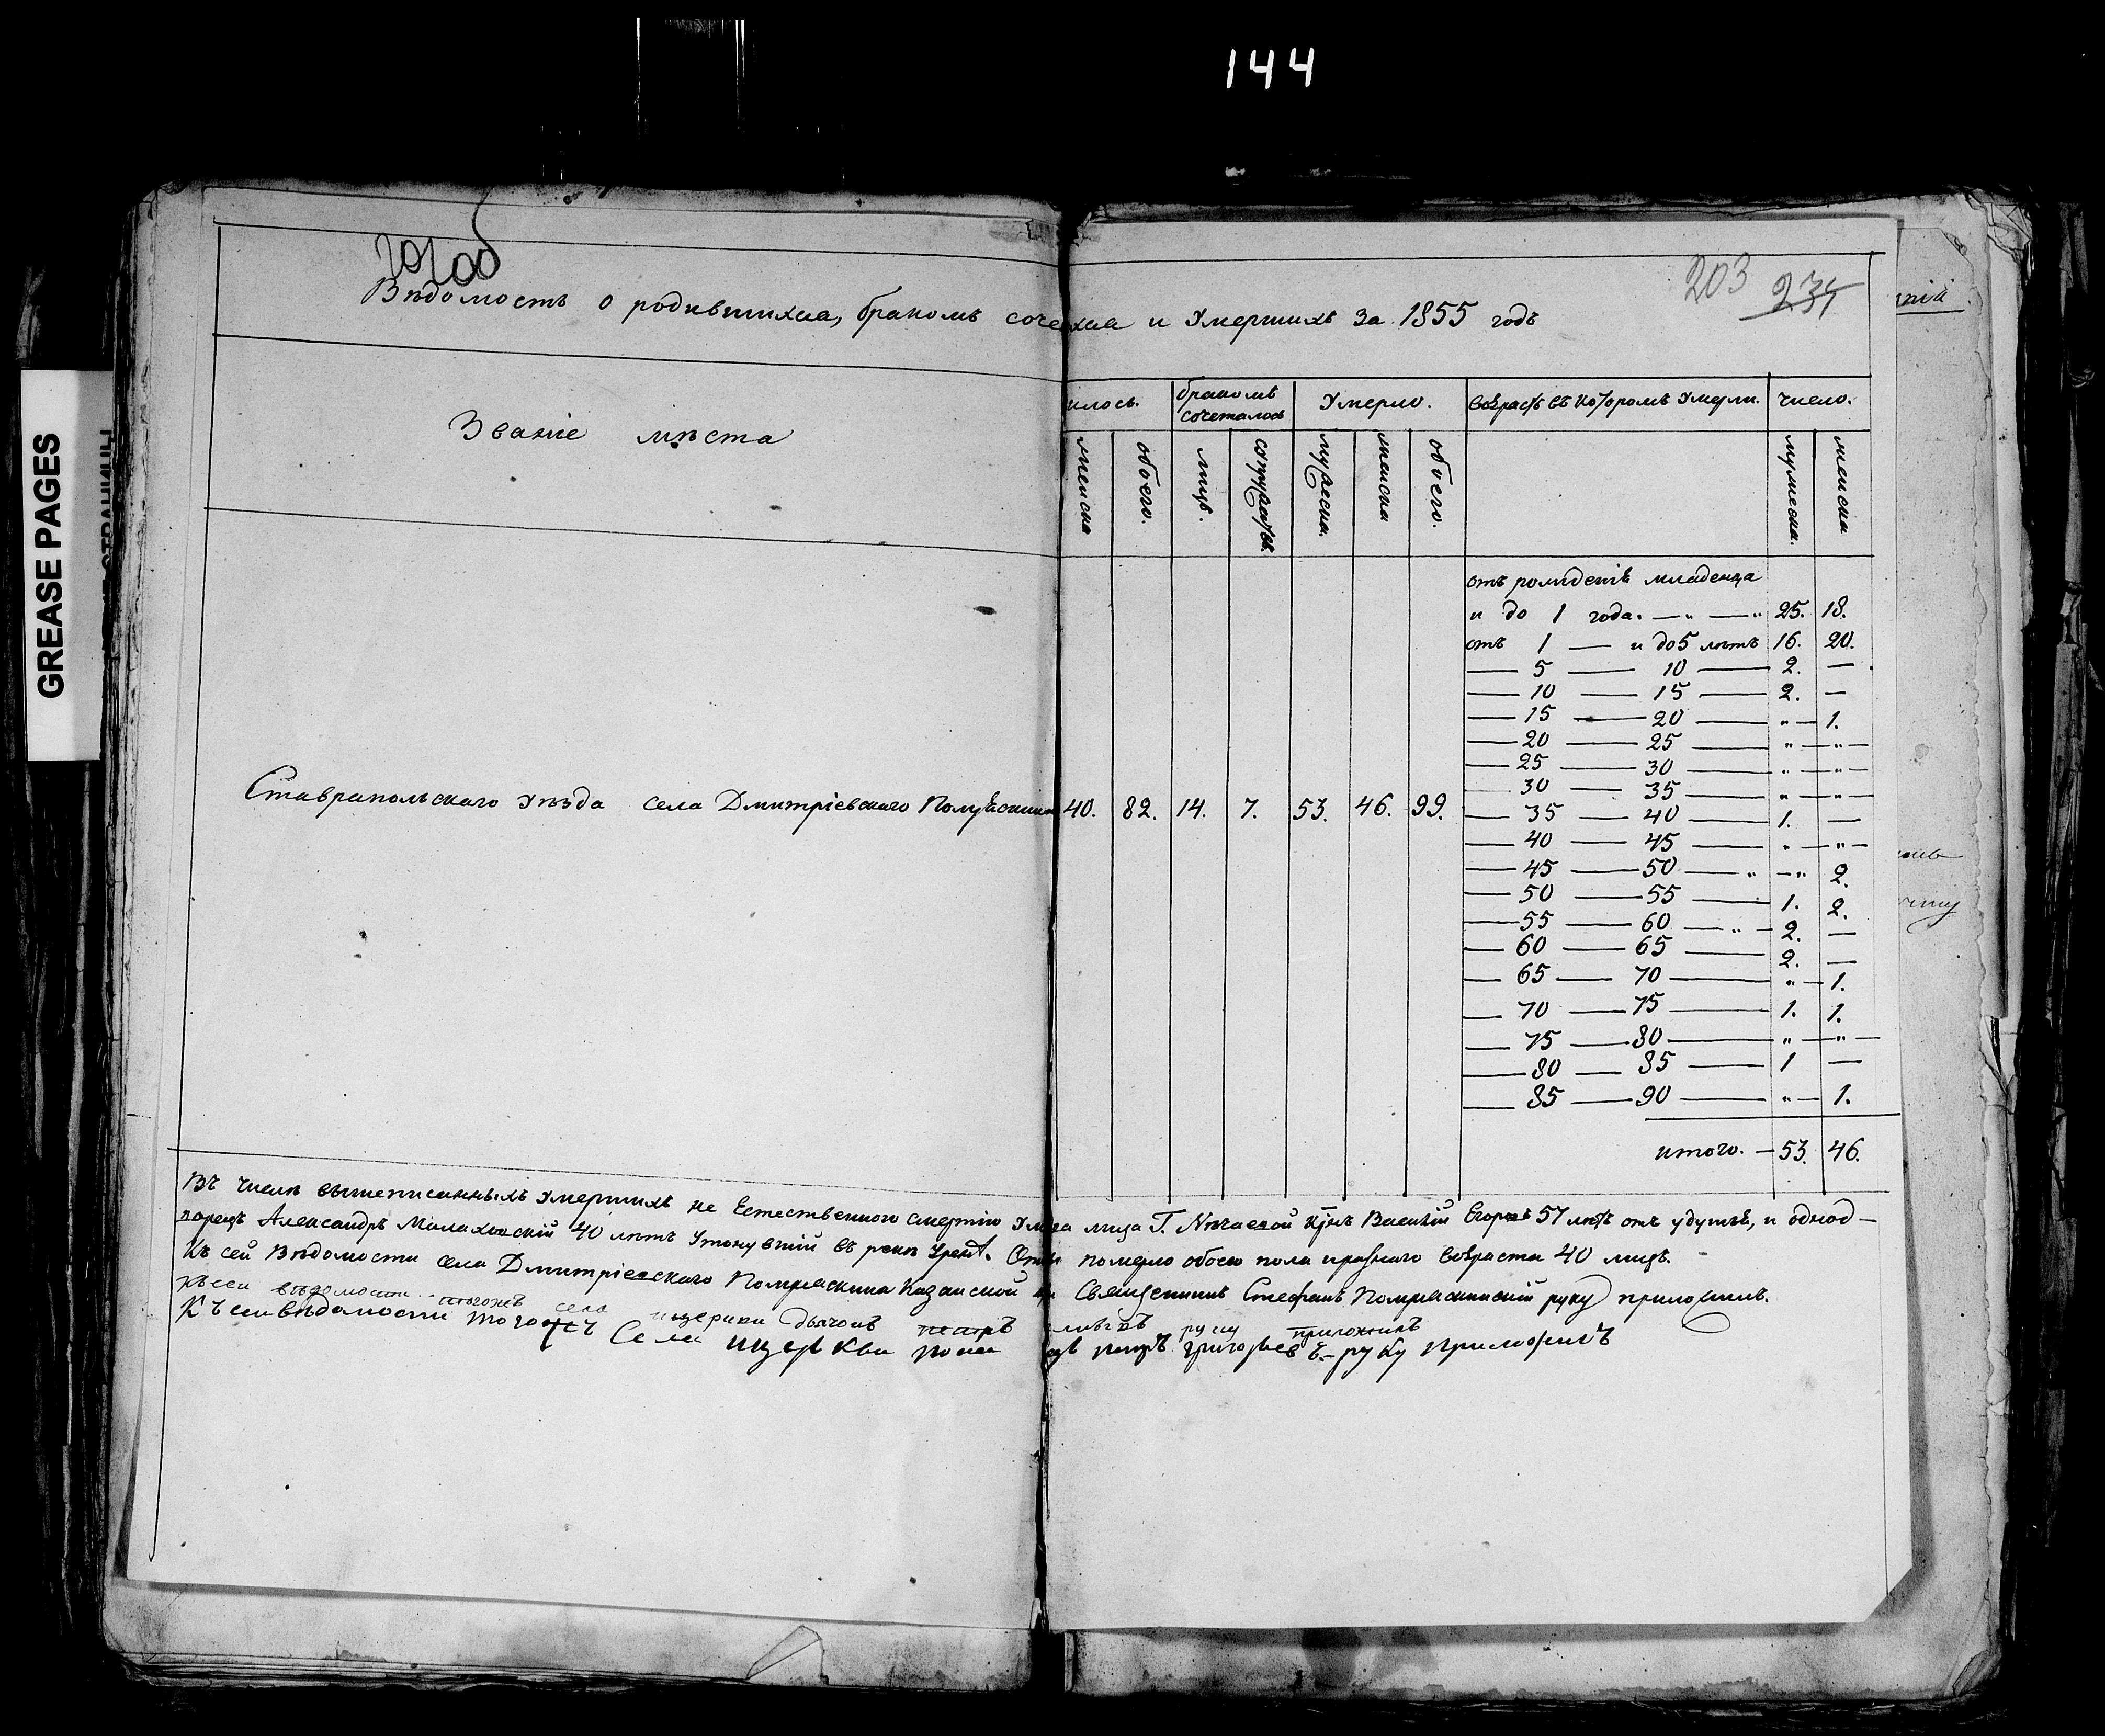 144
GREASE PAGES
203 234
Вѣдомость о родившихся, бракомъ соче хся и Умершихъ за 1855 годъ
Званіе мѣста
илось. бракомъ сочеталось Умерло. возрастъ въ которомъ Умерли. число.
женска обоего. лицъ. супружествъ. мужеска. женска обоего. мужеска. женска
отъ рожденія младенца
и до 1 года. — „ — „ 25. 18.
отъ 1 — и до 5 лѣтъ 16. 20.
— 5 — 10 — 2. —
— 10 — 15 — 2. —
— 15 — 20 — „ — 1.
— 20 — 25 — „ — „ —
— 25 — 30 — „ — „ —
— 30 — 35 — „ — „ —
Ставрапольскаго Уѣзда села Дмитріевскаго 40. 82. 14. 7. 53. 46. 99.
— 35 — 40 — 1. —
— 40 — 45 — „ — „ —
— 45 — 50 — „ — „ 2.
— 50 — 55 — 1. 2.
— 55 — 60 — „ — 2. —
— 60 — 65 — 2. —
— 65 — 70 — „ — 1.
— 70 — 75 — 1. 1.
— 75 — 80 — „ — „ —
— 80 — 85 — 1 —
— 85 — 90 — „ — 1.
итого. — 53. 46.
Въ числѣ вышеписанныхъ Умершихъ не Естественного смертію лица Г. Нѣчаевой Василій 57 лѣтъ отъ удушья, и однод—
ворецъ Александръ Малаховскій 40 лѣтъ Утонувшій въ рекѣ померло обоего пола возраста 40 лицъ.
Къ сей Вѣдомости села Дмитріевскаго Помряскина Казанской Священникъ Стефанъ Помряскинскій руку приложилъ.
къ сей вѣдомости тогожъ села церкви дьячокъ петръ руку приложилъ
Къ сей вѣдомости тогожъ Села церкви поно петръ григорьевъ — руку приложилъ